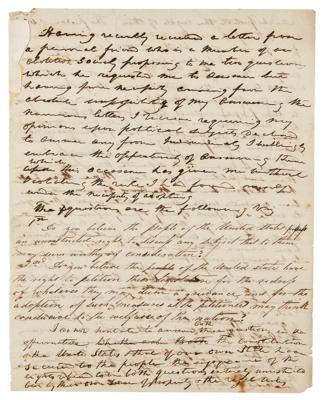 Having recently received a letter from
a personal friend who is a member of an
abolition Society proposing to me two questions
which he requested me to answer but
having from necessity arising from the
absolute impossibility of my answering the
numerous letters I receive requiring my
opinions upon political subjects declined
to answer any from individuals I willingly
embrace the opportunity of answering them
which this occasion has given me without
violating the rules I have found myself
under the necessity of adopting
The questions are the following Viz
1st
Do you believe the people of the United States possess
an unrestricted right to discuss any subject that to them
may seem worthy of consideration?
2nd Do you believe the people of the United States have
the right to petition their for the redress
of whatever they may deem a grievance, and for the
adoption of such measures as the petitioners may think
conducive to the welfare of the nation?
I do not hesitate to answer both questions in the
affirmative the constitution
of the United States that of our own State have
secured to the people the enjoyment of the
rights in both questions
of property the